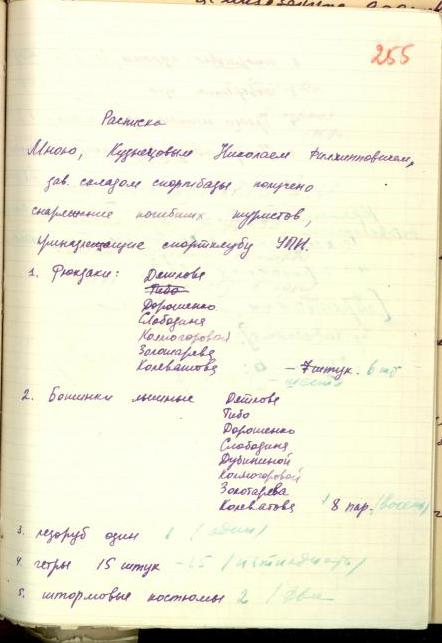 255
Расписка
Мною, Кузнецовым Николаем Филипповичем,
зав. складом спортбазы, получено
снаряжение погибших туристов,
принадлежащие спортклубу УПИ.
1. Рюкзаки: Дятлова
Тибо
Дорошенко
Слободина
Колмогоровой
Золотарева
Колеватова – 7 штук. 6 шт
шесть
2. Ботинки лыжные Дятлова
Тибо
Дорошенко
Слободина
Дубининой
Колмогоровой
Золотарева
Колеватова 8 пар. (восемь)
3. ледоруб один 1 (один)
4. гетры 15 штук – 15 (пятнадцать)
5. штормовые костюмы 2 (два